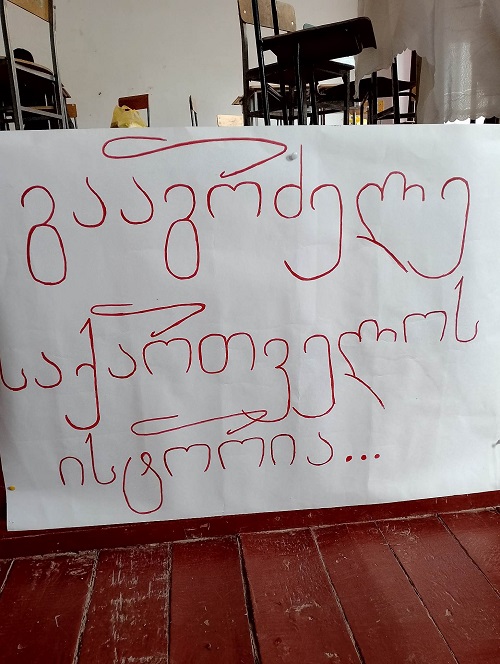 გააგრძელე
საქართველოს
ისტორია...